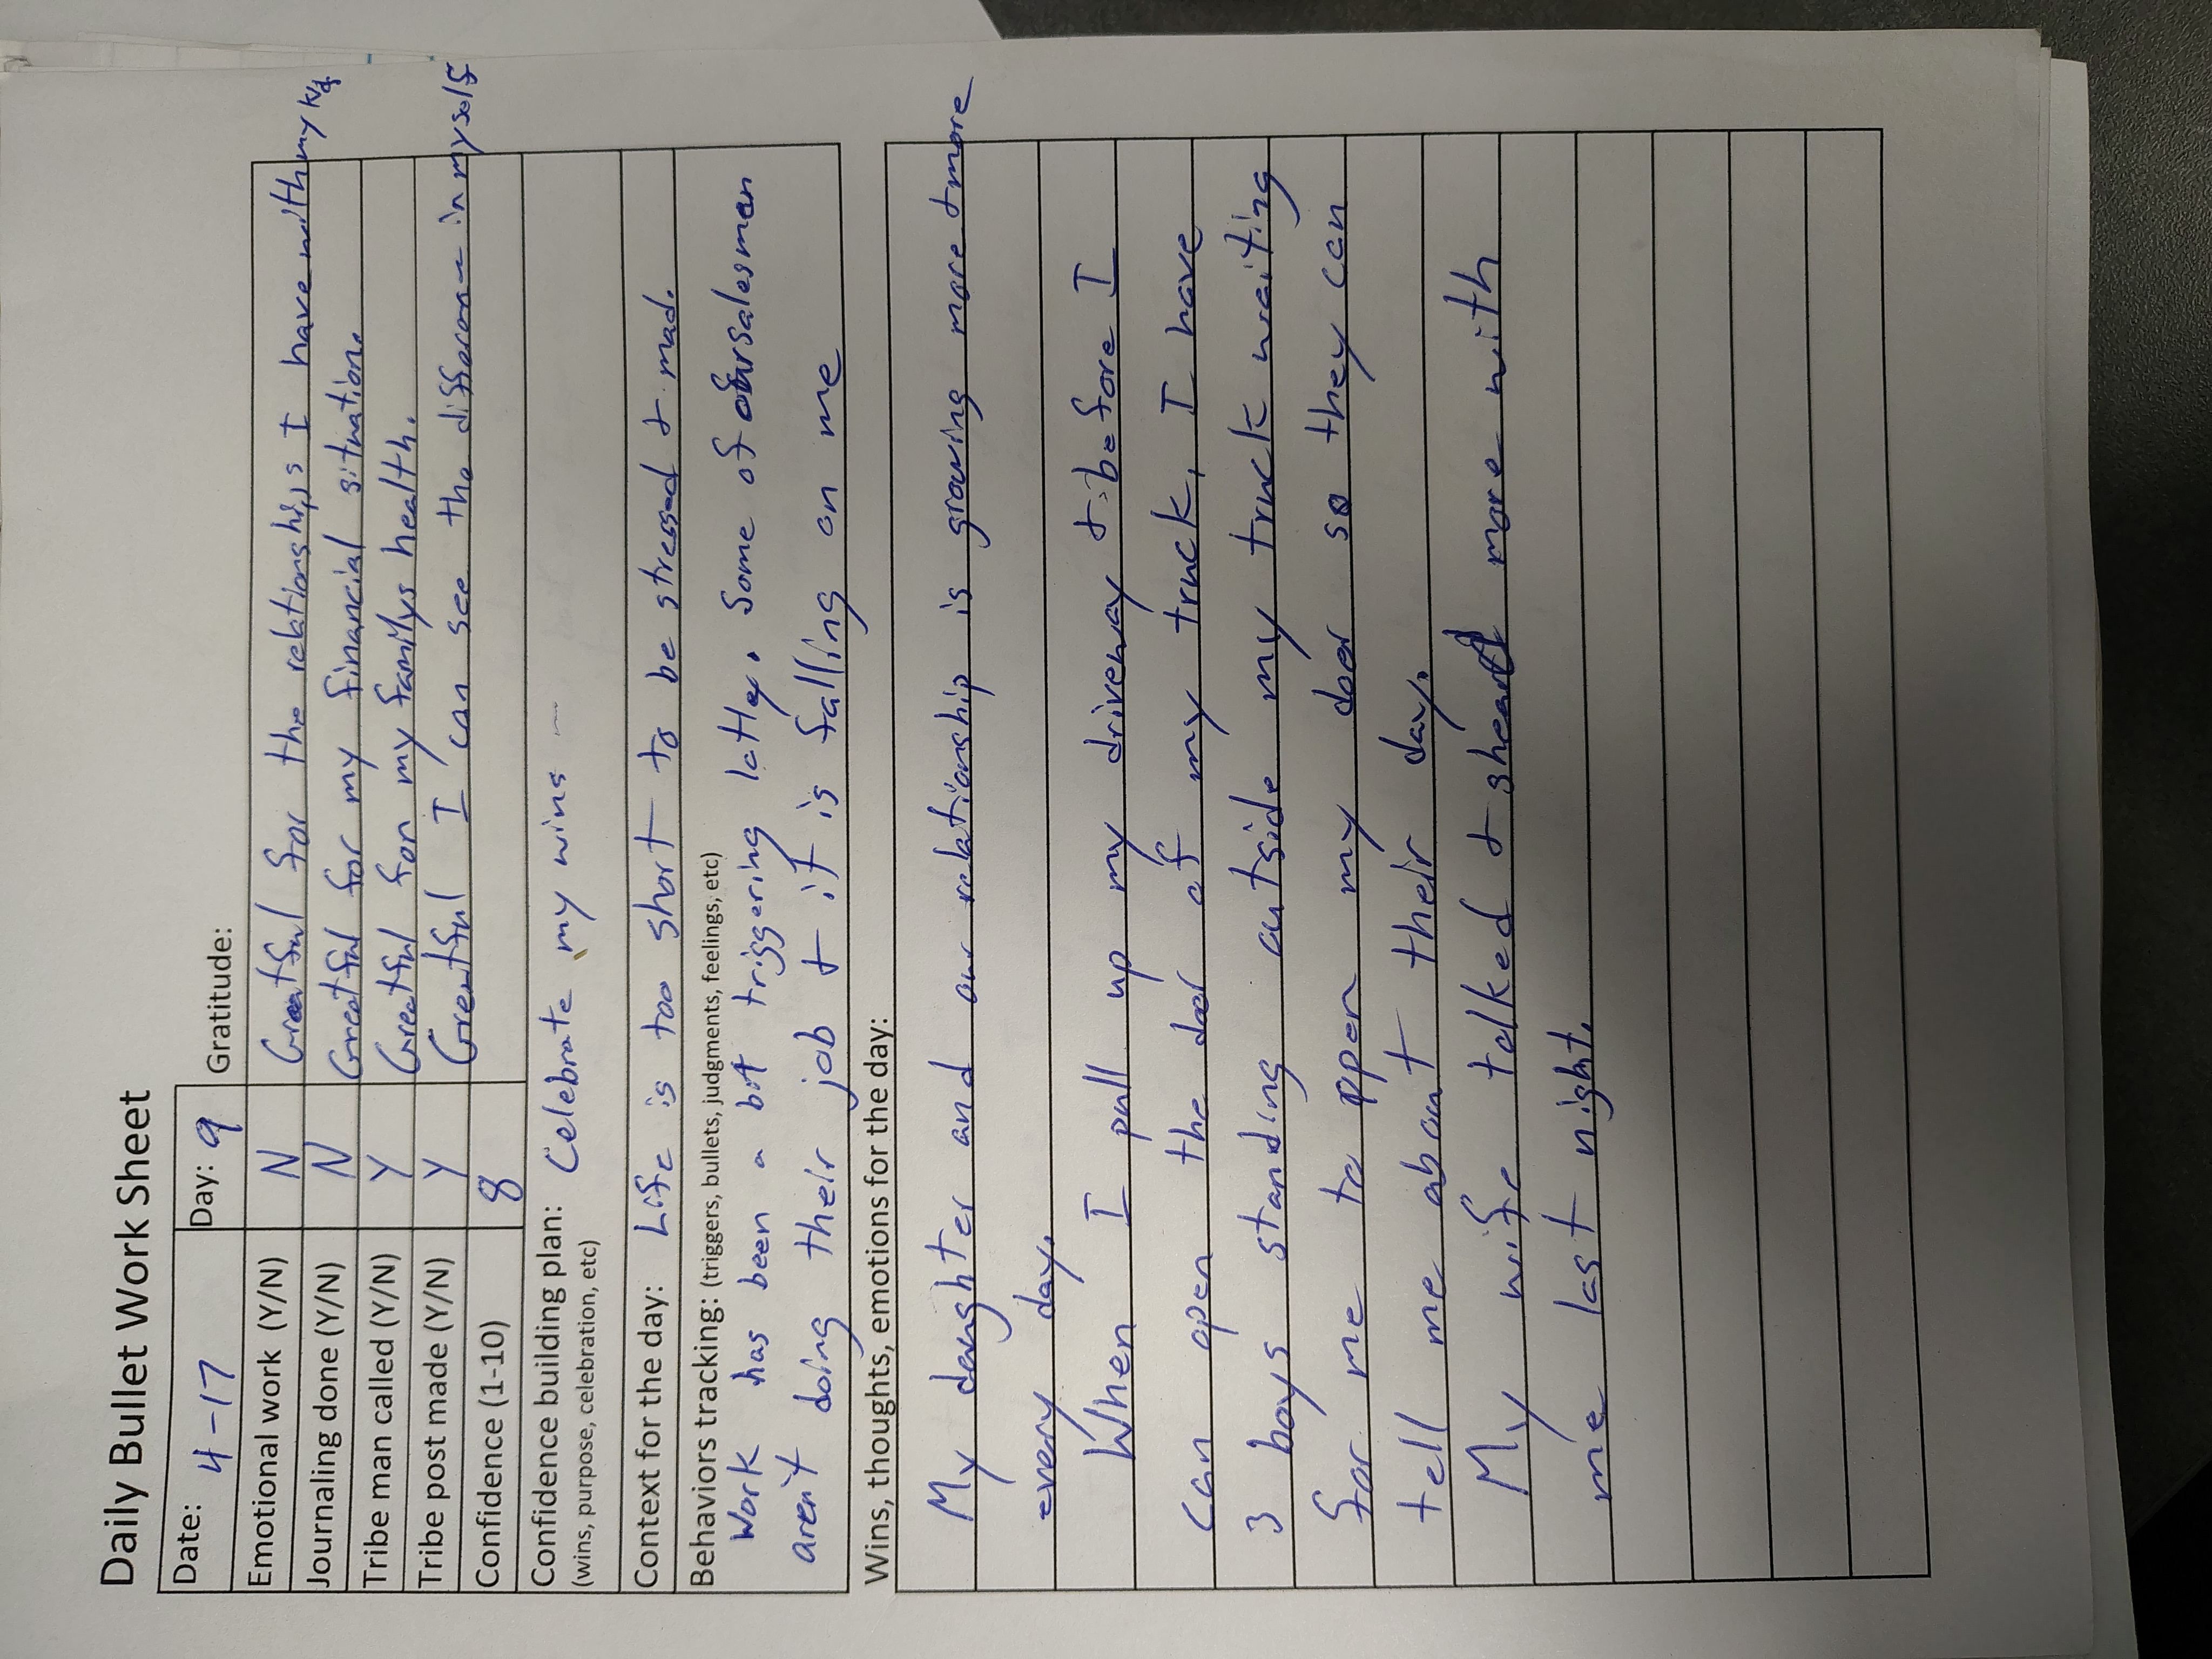 Daily Bullet Work Sheet
Date: 4-17 Day: 9 Gratitude:
Emotional work (Y/N) N Greatful for the relationships I have with my kids
Journaling done (Y/N) N Greatful for my financial situation.
Tribe man called (Y/N) Y Greatful for my familys health.
Tribe post made (Y/N) Y Greatful I can see the difference in myself
Confidence (1-10) 8
Confidence building plan: Celebrate my wins
(wins, purpose, celebration, etc)
Context for the day: Life is too short to be stressed & mad.
Behaviors tracking: (triggers, bullets, judgments, feelings, etc)
Work has been a bit triggering latley. Some of our salesmen
aren't doing their job & it is falling on me
Wins, thoughts, emotions for the day:
My daughter and our relationship is growing more & more
every day.
When I pull up my driveway & before I
can open the door of my truck, I have
3 boys standing outside my truck waiting
for me to open my door so they can
tell me about their day.
My wife talked & more with
me last night.